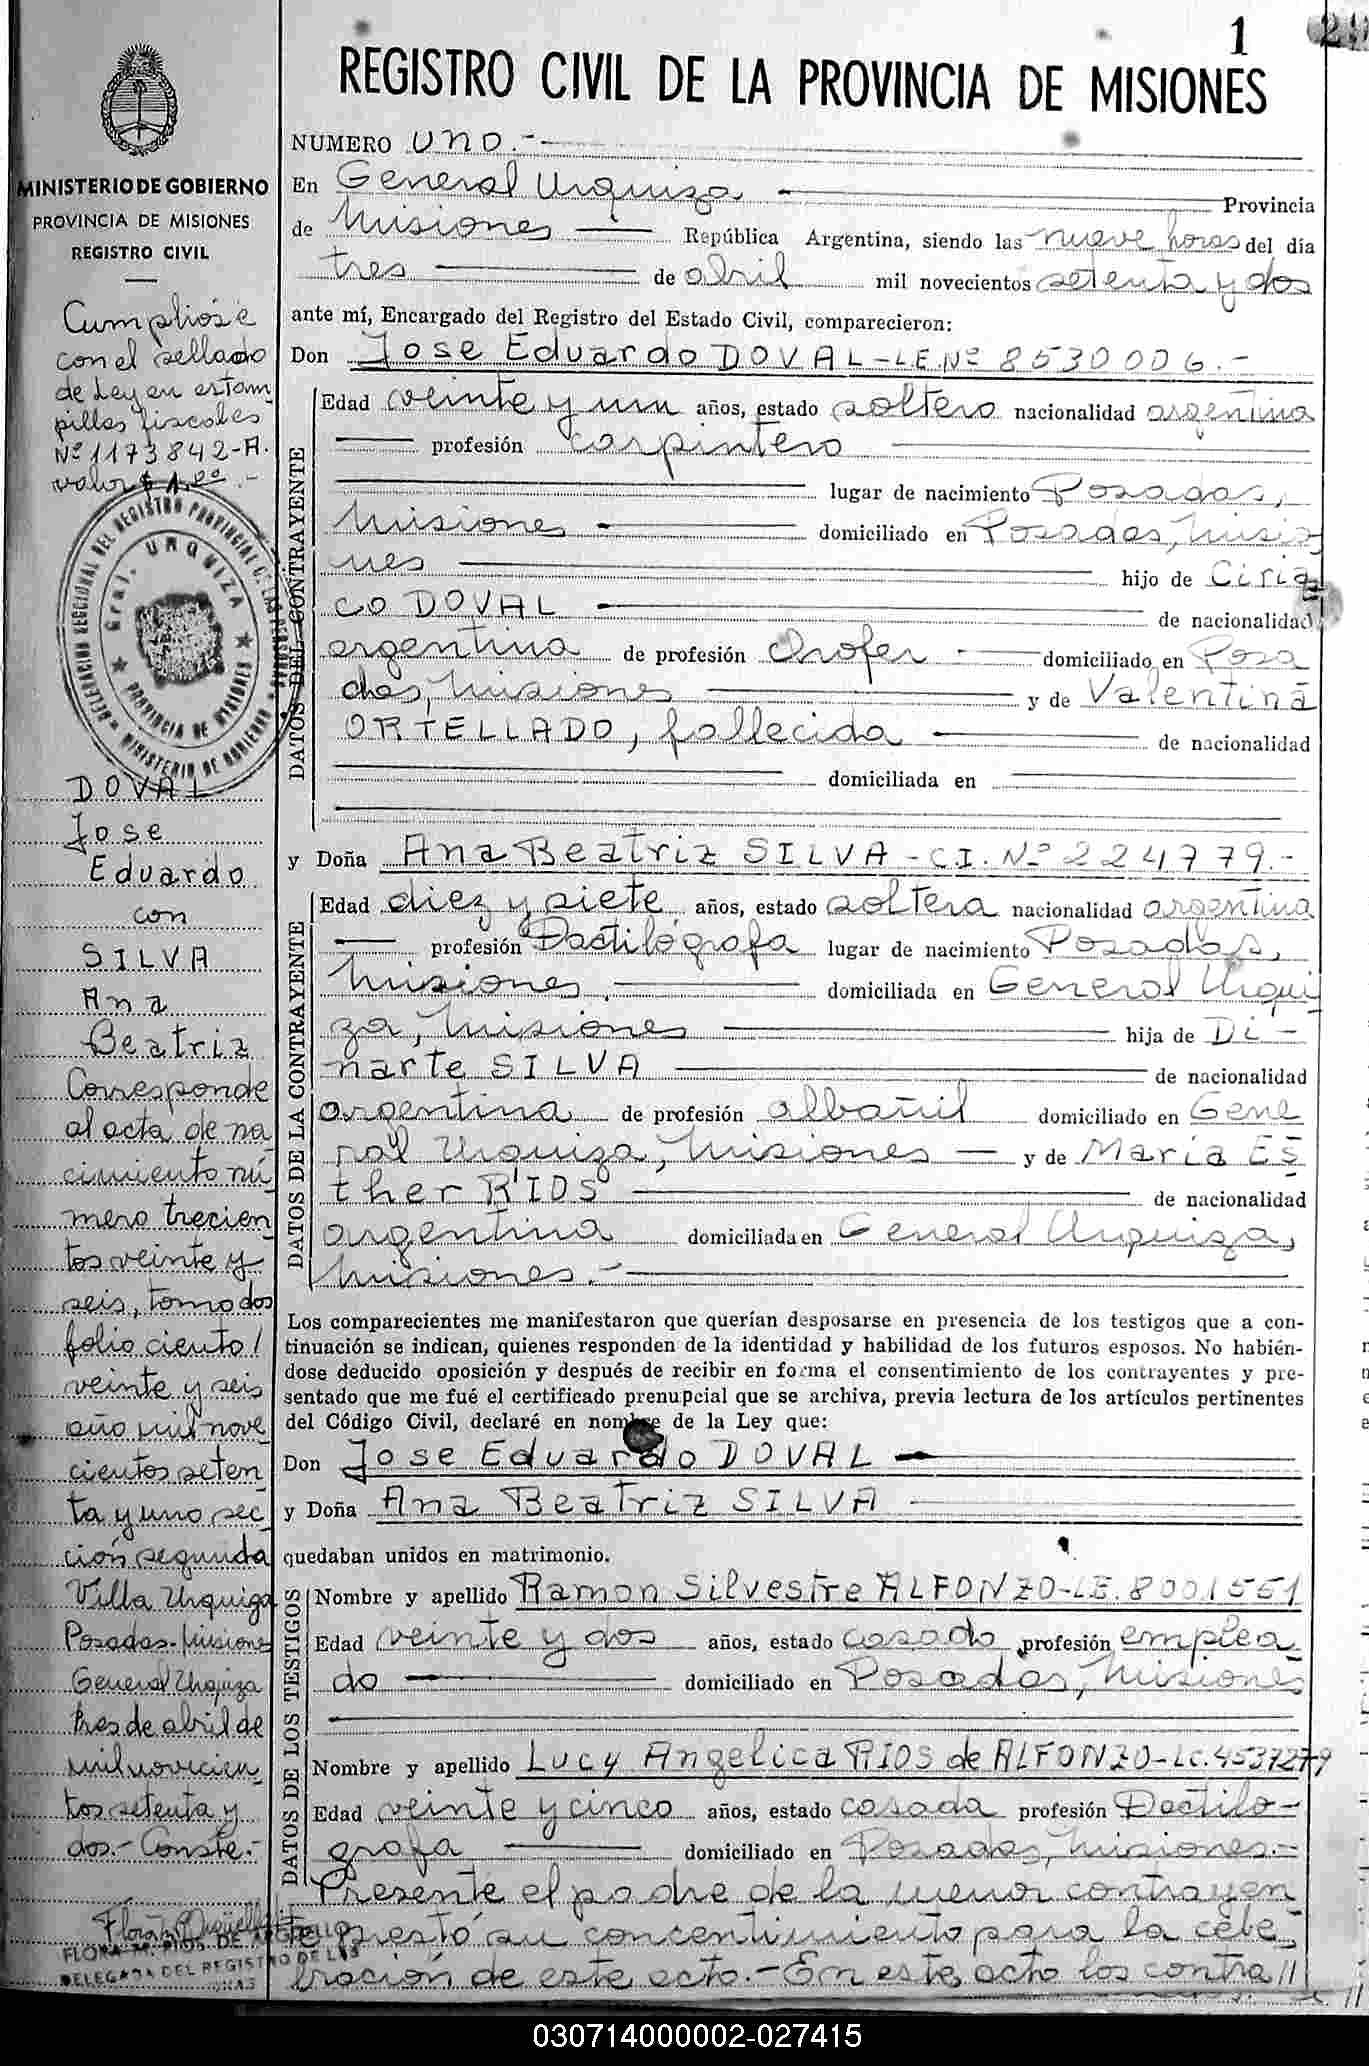 1
REGISTRO CIVIL DE LA PROVINCIA DE MISIONES
MINISTERIO DE GOBIERNO
PROVINCIA DE MISIONES
REGISTRO CIVIL
Cumplióse
con el sellado
de Ley en estam
pillas fiscales
Nº 1173842-A.
valor $ 1,00.-
DELEGACION SECCIONAL DEL REGISTRO PROVINCIAL DE LAS PERSONAS
Gral. URQUIZA
PROVINCIA DE MISIONES
MINISTERIO DE GOBIERNO
DOVAL
Jose
Eduardo
con
SILVA
Ana
Beatriz
Corresponde
al acta de na
cimiento nú
mero trecien
tos veinte y
seis, tomo dos
folio ciento /
veinte y seis
año mil nove
cientos seten
ta y uno sec
ción segunda
Villa Urquiza
Posadas-Misiones
General Urquiza
tres de abril de
mil novecien
tos setenta y
dos.- Conste.-
FLORA M. RIOS DE
DELEGADA DEL REGISTRO DE LAS
NUMERO uno.-
En General Urquiza Provincia
de Misiones República Argentina, siendo las nueve horas del día
tres de abril mil novecientos setenta y dos
ante mí, Encargado del Registro del Estado Civil, comparecieron:
Don Jose Eduardo DOVAL-LE.Nº 8530006.-
DATOS DEL CONTRAYENTE
Edad veinte y un años, estado soltero nacionalidad argentina
profesión carpintero
lugar de nacimiento Posadas,
Misiones domiciliado en Posadas, Misio
nes hijo de Ciria
co DOVAL de nacionalidad
argentina de profesión chofer domiciliado en Posa
das, Misiones y de Valentina
ORTELLADO, fallecida de nacionalidad
domiciliada en
y Doña Ana Beatriz SILVA - C.I. Nº 224779.-
DATOS DE LA CONTRAYENTE
Edad diez y siete años, estado soltera nacionalidad argentina
profesión Dactilógrafa lugar de nacimiento Posadas,
Misiones. domiciliada en General Urqui
za, Misiones hija de Di-
narte SILVA de nacionalidad
argentina de profesión albañil domiciliado en Gene
ral Urquiza, Misiones y de María Es
ther RIOS de nacionalidad
argentina domiciliada en General Urquiza,
Misiones.-
Los comparecientes me manifestaron que querían desposarse en presencia de los testigos que a con-
tinuación se indican, quienes responden de la identidad y habilidad de los futuros esposos. No habién-
dose deducido oposición y después de recibir en forma el consentimiento de los contrayentes y pre-
sentado que me fué el certificado prenupcial que se archiva, previa lectura de los artículos pertinentes
del Código Civil, declaré en nombre de la Ley que:
Don Jose Eduardo DOVAL
y Doña Ana Beatriz SILVA
quedaban unidos en matrimonio.
DATOS DE LOS TESTIGOS
Nombre y apellido Ramon Silvestre ALFONZO-LE.8001551
Edad veinte y dos años, estado casado profesión emplea
do domiciliado en Posadas, Misiones
Nombre y apellido Lucy Angelica RIOS de ALFONZO-LC.4537279
Edad veinte y cinco años, estado casada profesión Dactilo-
grafa domiciliado en Posadas, Misiones.-
Presente el padre de la menor contrayen
te prestó su concentimiento para la cele
bración de este acto.- En este acto los contra //
030714000002-027415